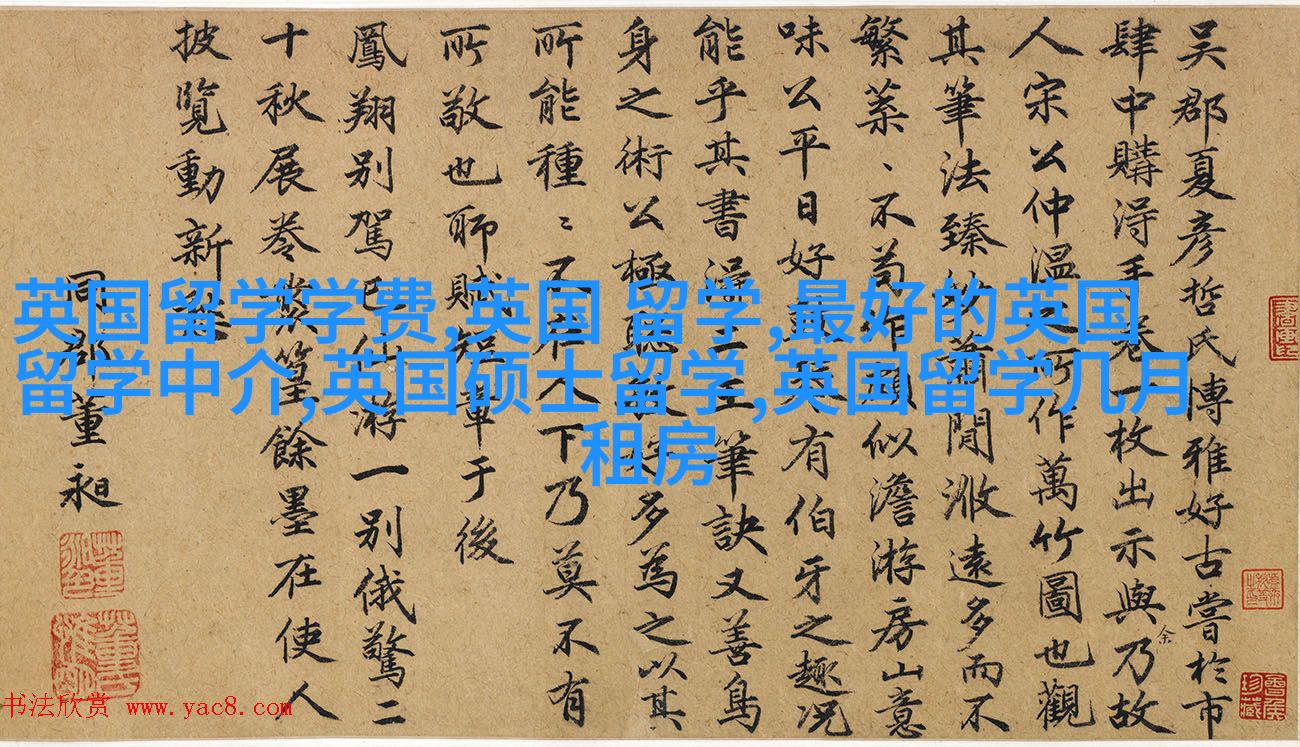 吴郡夏彦哲氏博雅好古嘗於市
肆中購得手卷一枚出示與余乃故
人宋公仲温之所作萬竹圖也觀
其筆法臻妙蕭閒淑遠多而不
繁蓁〻不苟
似澹游房山意
味公平日好
有伯牙之趣况
能乎其書得
筆訣又善鳥
身之術公極聰
多為之以其
所能種〻
人下乃莫不有
所敬也聊賦短章于後
鳳翔別駕
仙游一别俄驚二
十秋展卷
餘墨在使人
披覽動新
同郡董昶
英国留学学费,英国 留学,最好的英国
留学中介,英国硕士留学,英国留学几月
租房
书法欣赏 www.yac8.com